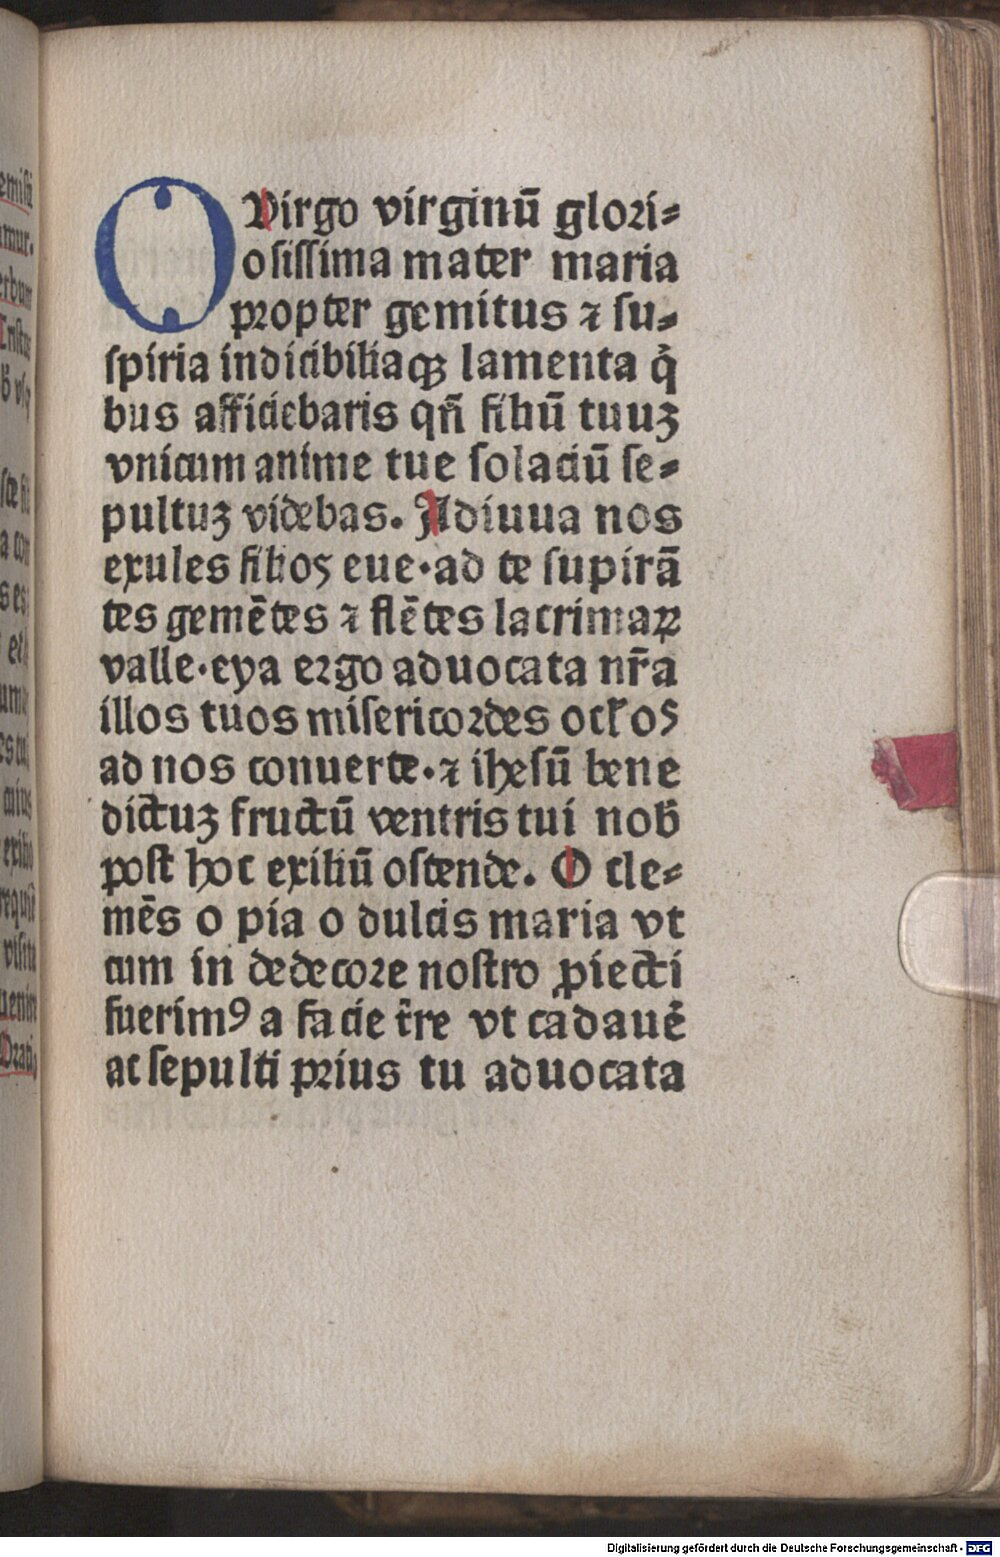 O Virgo virginū glori⸗
osissima mater maria
propter gemitus ⁊ su⸗
spiria indicibiliaqꝫ lamenta q̇
bus afficiebaris qn̄ filiū tuuȝ
vnicum anime tue solaciū se⸗
pultuȝ videbas. Adiuua nos
exules filios eue·ad te supirā
tes gemētes ⁊ flētes lacrimaꝝ
valle·eya ergo aduocata nr̄a
illos tuos misericordes ocl̓os
ad nos conuerte·⁊ ihesū bene
dictuȝ fructū ventris tui nob̓
post hoc exiliū ostende. O cle⸗
mēs o pia o dulcis maria vt
cum in dedecore nostro ꝓiecti
fuerimꝰ a facie t̄re vt cadauē
ac sepulti prius tu aduocata
Digitalisierung gefördert durch die Deutsche Forschungsgemeinschaft - DFG